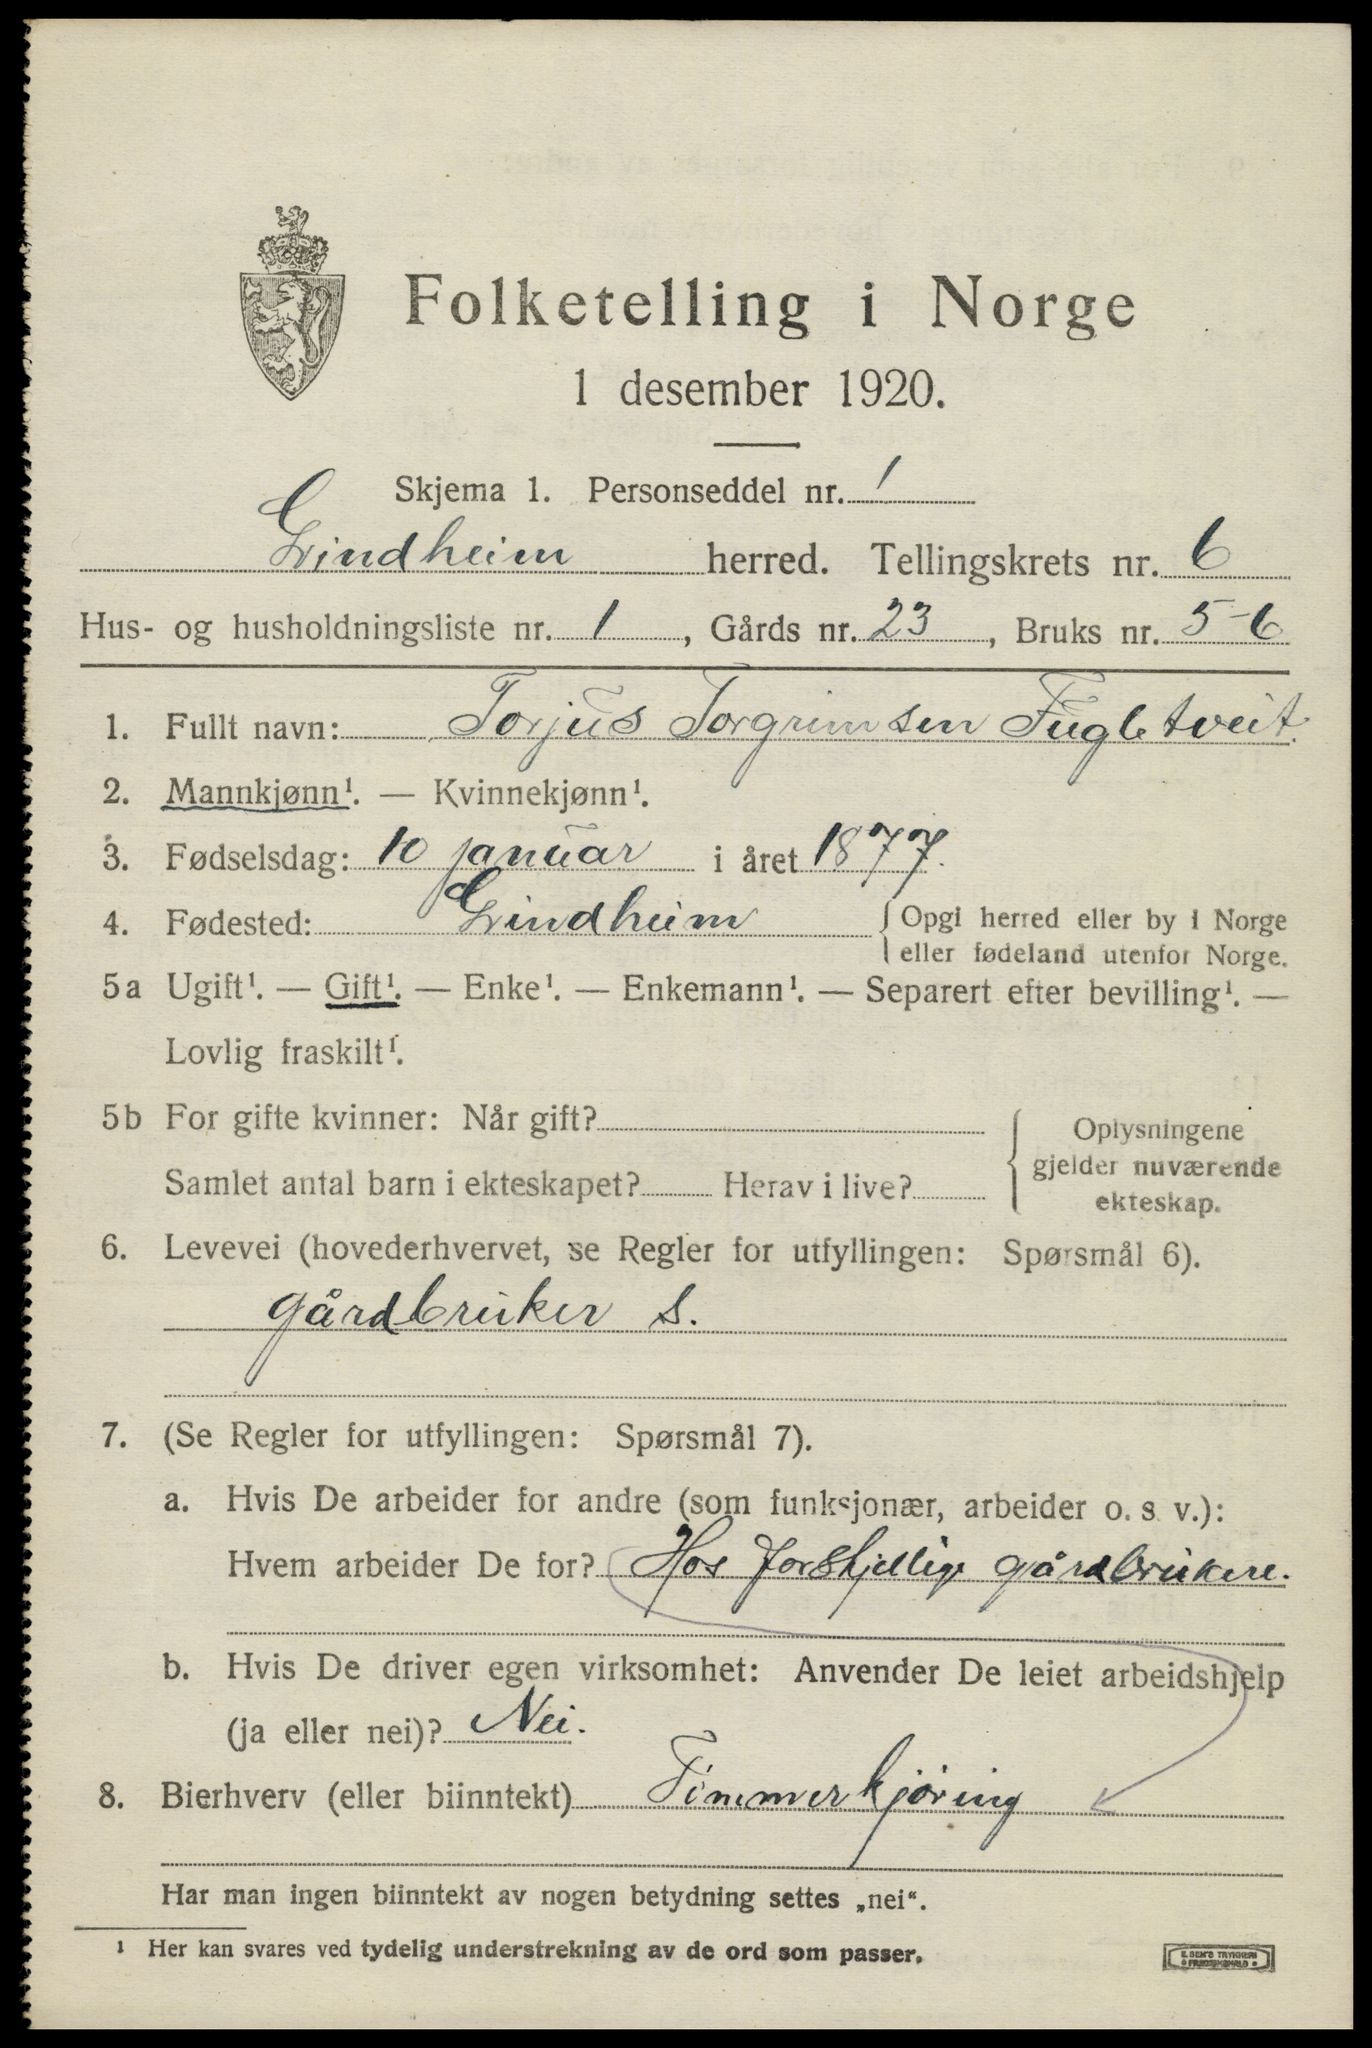 Folketelling i Norge
1 desember 1920.
Skjema 1. Personseddel nr. 1
Grindheim herred. Tellingskrets nr. 6
Hus- og husholdningsliste nr. 1, Gårds nr. 23, Bruks nr. 5-6
1. Fullt navn: Torjus Torgrimsen Fugletveit.
2. Mannkjønn¹. — Kvinnekjønn¹.
3. Fødselsdag: 10 januar i året 1877.
4. Fødested: Grindheim {Opgi herred eller by i Norge
eller fødeland utenfor Norge.
5a Ugift¹. — Gift¹. — Enke¹. — Enkemann¹. — Separert efter bevilling¹. —
Lovlig fraskilt¹.
5b For gifte kvinner: Når gift? {Oplysningene
gjelder nuværende
Samlet antal barn i ekteskapet? Herav i live?
ekteskap.
6. Levevei (hovederhvervet, se Regler for utfyllingen: Spørsmål 6).
gårdbruker S.
7. (Se Regler for utfyllingen: Spørsmål 7).
a. Hvis De arbeider for andre (som funksjonær, arbeider o. s. v.):
Hvem arbeider De for? Hos forskjellige gårdbrukere.
b. Hvis De driver egen virksomhet: Anvender De leiet arbeidshjelp
(ja eller nei)? Nei.
8. Bierhverv (eller biinntekt) Timmerkjöring
Har man ingen biinntekt av nogen betydning settes „nei“.
¹ Her kan svares ved tydelig understrekning av de ord som passer.